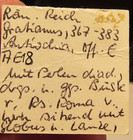 Röm. Reich
Gratianus, 367-383
Antiochia
AE18
mit Perlendiad.
drap. u. gep. Büste
r., Rs. Roma v.
vorn sitzend mit
Globus u. Lanze,